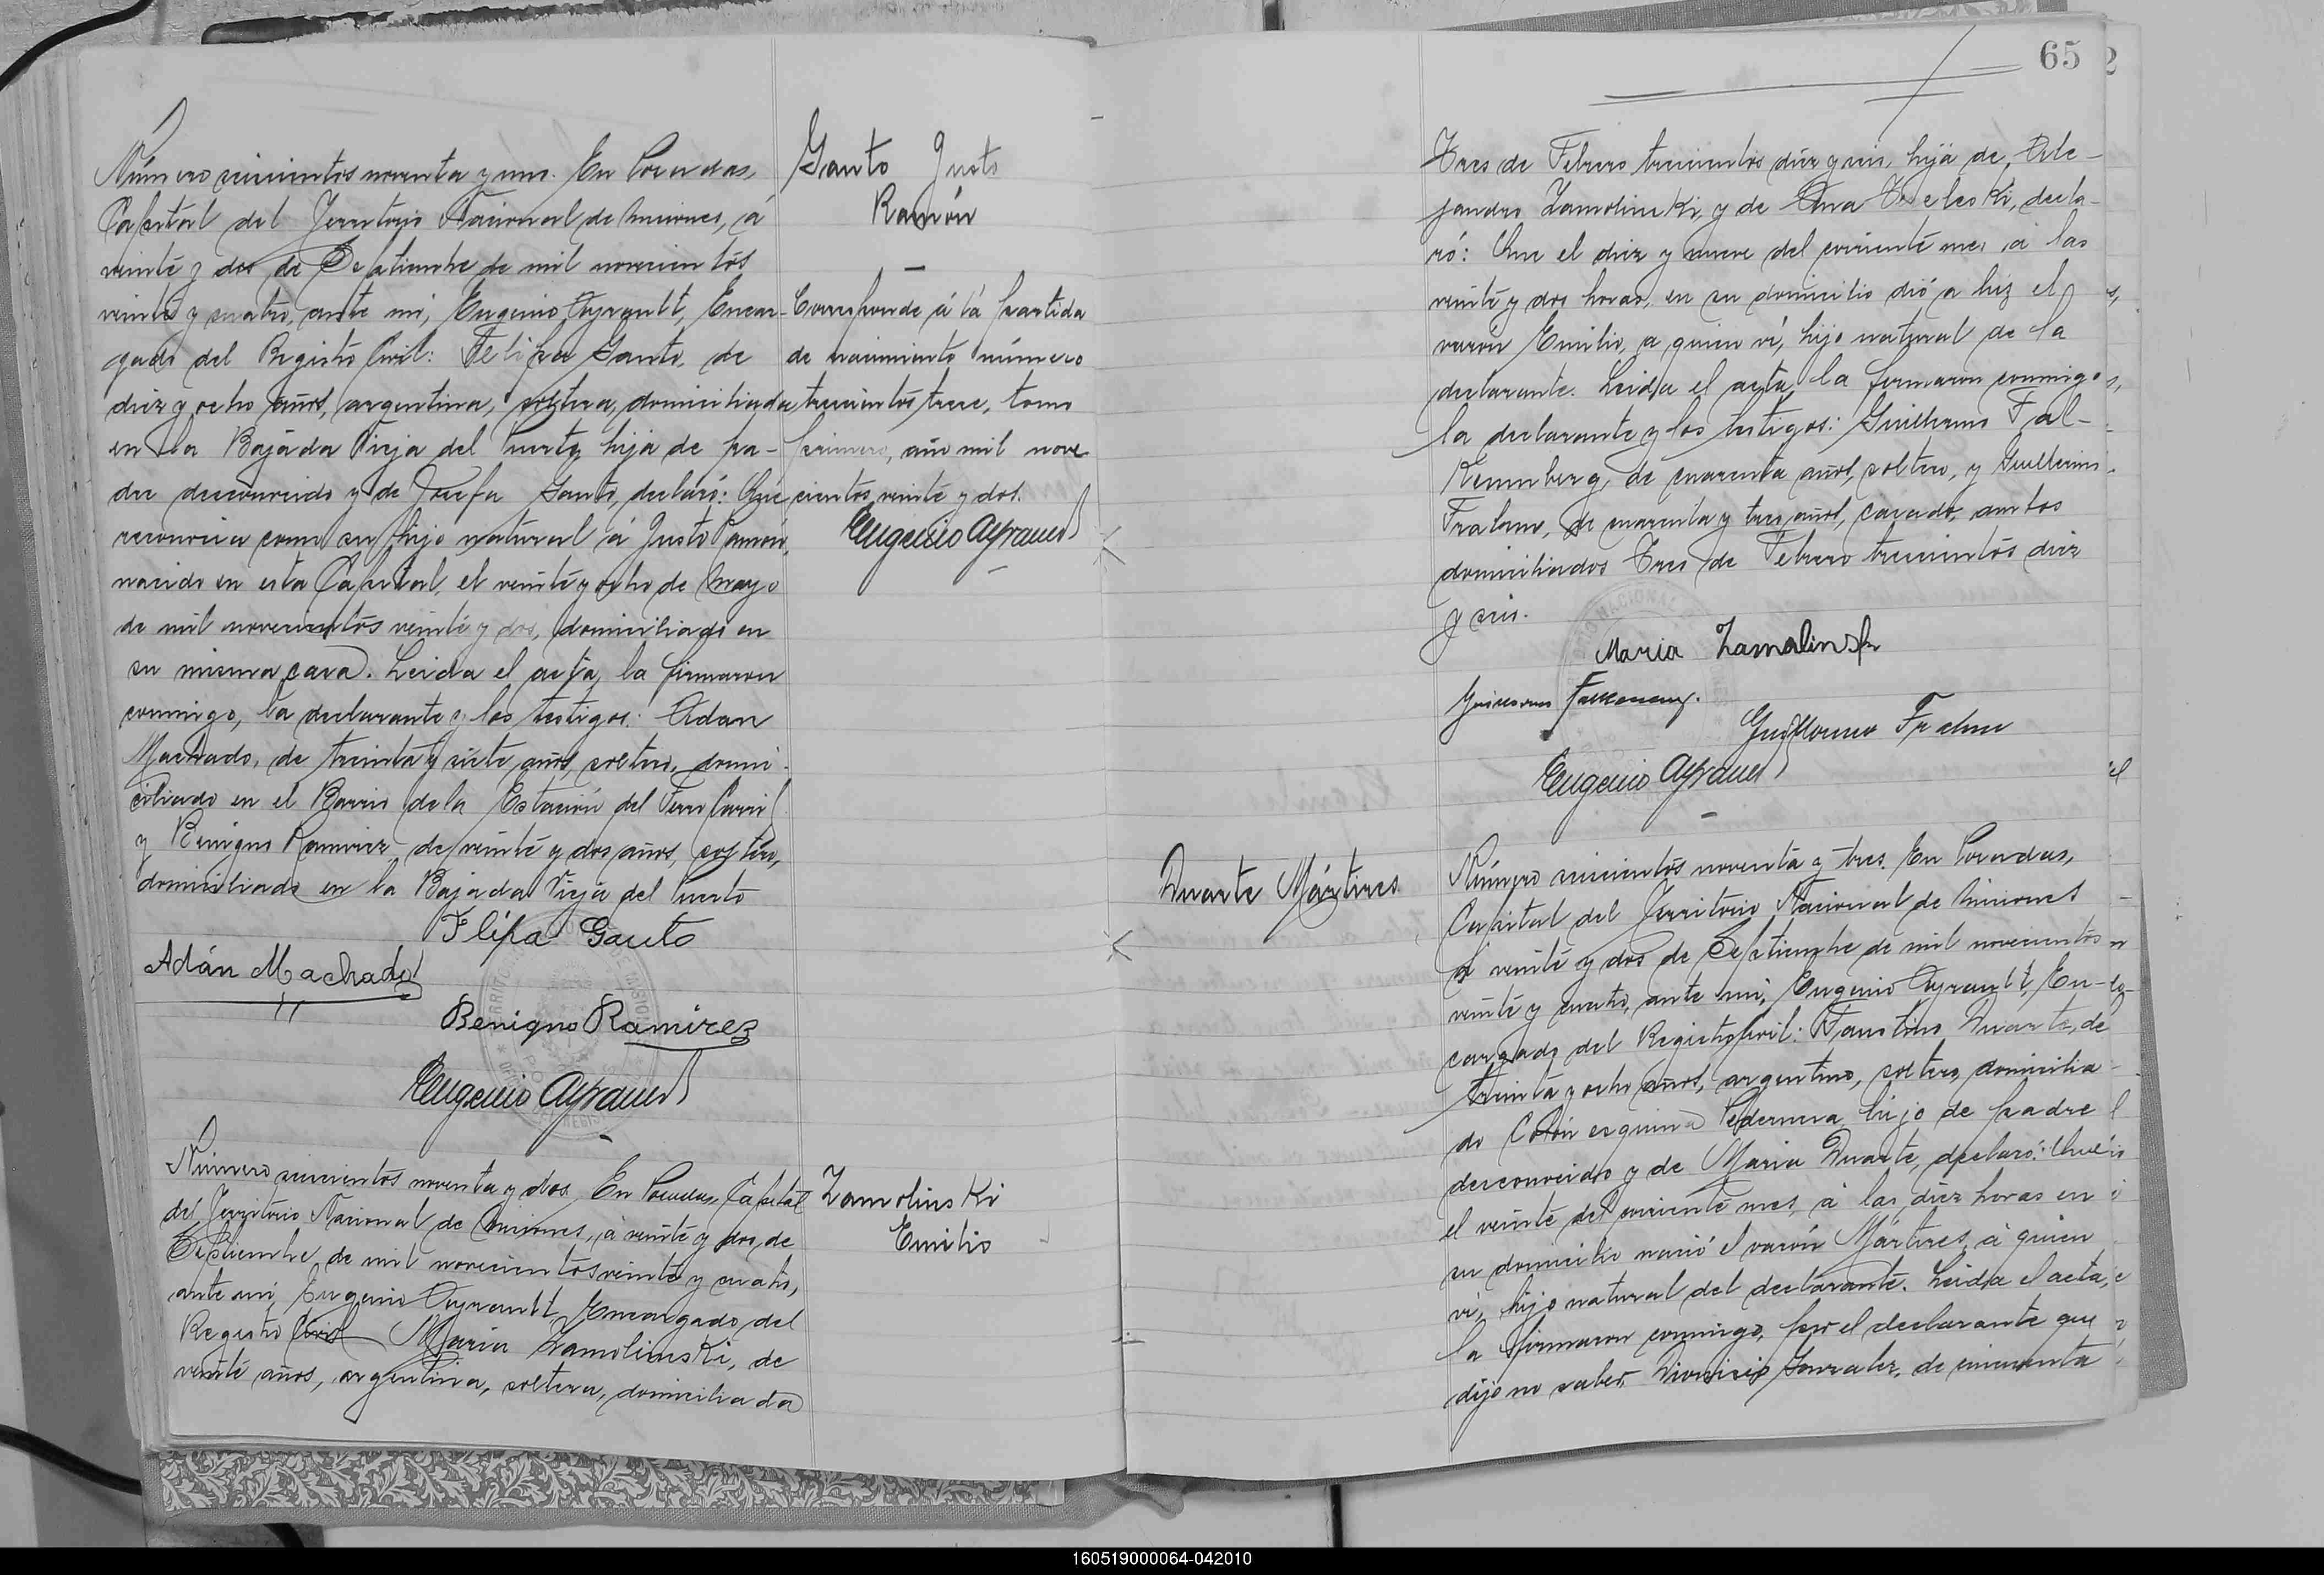 Número seiscientos noventa y uno. En Posadas,
Capital del Territorio Nacional de Misiones, á
veinte y dos de Septiembre de mil novecientos
veinte y cuatro, ante mí, Eugenio Ayrault, Encar-
gado del Registro Civil: Felipa Gauto, de
diez y ocho años, argentina, soltera, domiciliada
en la Bajada Vieja del Puerto, hija de pa-
dre desconocido y de Josefa Gauto, declaró: Que
reconocia como su hijo natural á Justo Ramón,
nacido en esta Capital, el veinte y ocho de Mayo
de mil novecientos veinte y dos, domiciliado en
su misma casa. Leida el acta, la firmaron
conmigo, la declarante y los testigos: Adan
Machado, de treinta y siete años, soltero, domi-
ciliado en el Barrio de la Estación del Ferro Carril
y Benigno Ramirez, de veinte y dos años, soltero,
domiciliado en la Bajada Vieja del Puerto
Flipa Gauto
Adán Machado
Benigno Ramírez
Eugenio Ayrault
Gauto Justo
Ramón
Corresponde á la partida
de nacimiento número
trescientos trece, tomo
primero, año mil nove
cientos veinte y dos.
Eugenio Ayrault
Número seiscientos noventa y dos. En Posadas, Capital
del Territorio Nacional de Misiones, á veinte y dos de
Septiembre de mil novecientos veinte y cuatro,
ante mí, Eugenio Ayrault, Encargado del
Registro Civil María Zamolinski, de
veinte años, argentina, soltera, domiciliada
Zamolinski
Emilio
65
Tres de Febrero trescientos diez y seis, hija de Ale-
jandro Zamolinski, y de Ana, decla-
ró: Que el diez y nueve del corriente mes á las
veinte y dos horas, en su domicilio dió a luz el
varón Emilio, a quien ví, hijo natural de la
declarante. Leida el acta, la firmaron conmigo
la declarante y los testigos: Guillermo Fal-
kemberg, de cuarenta años, soltero, y Guillermo
de cuarenta y tres años, casado, ambos
domiciliados Tres de Febrero trescientos diez
y seis.
Maria Zamalinski
Guillermo
Guillermo
Eugenio Ayrault
Duarte Mártires
Número seiscientos noventa y tres. En Posadas,
Capital del Territorio Nacional de Misiones
á veinte y dos de Septiembre de mil novecientos
veinte y cuatro, ante mí, Eugenio Ayrault, En-
cargado del Registro Civil: Faustino Duarte, de
treinta y ocho años, argentino, soltero, domicilia-
do Colón esquina Pedernera, hijo de padre
desconocido y de Maria Duarte, declaró: Que
el veinte del corriente mes, á las diez horas en
su domicilio nació el varón Mártires, á quien
ví, hijo natural del declarante. Leida el acta,
la firmaron conmigo, por el declarante que
dijo no saber, Dionisio Gonzalez, de cincuenta
160519000064-042010